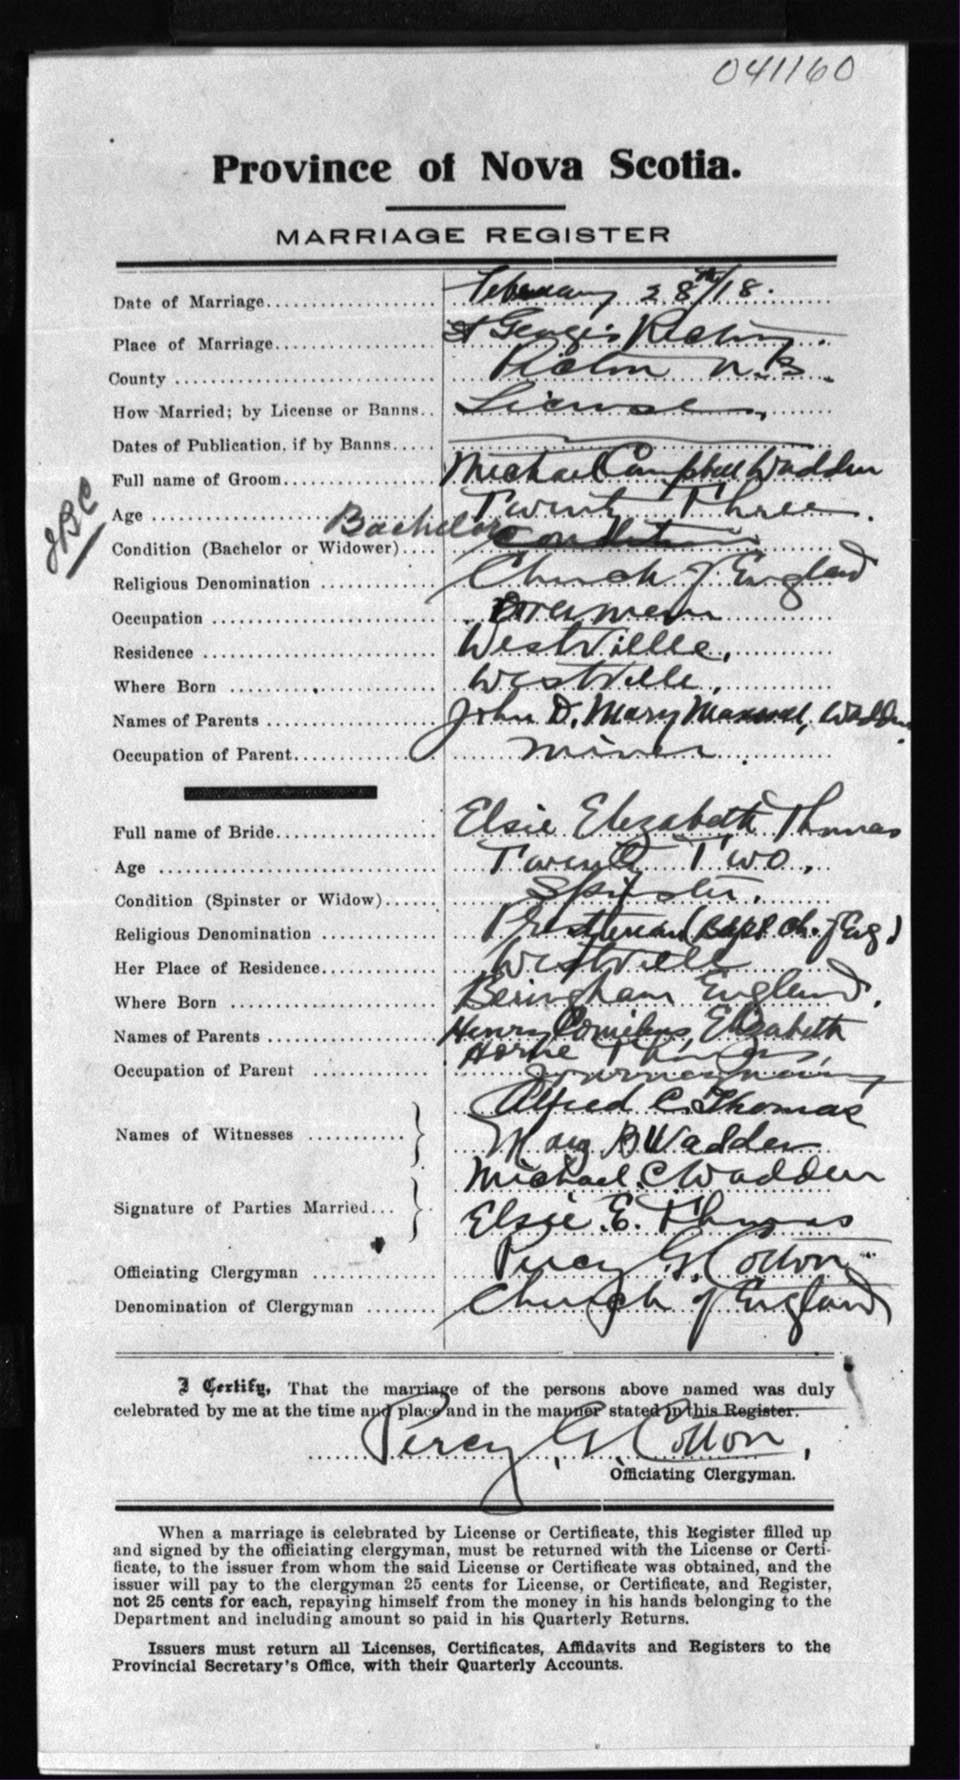 041160
Province of Nova Scotia.
MARRIAGE REGISTER
Date of Marriage February 28th/18.
Place of Marriage St Georges Rectory.
County Pictou N.S.
How Married; by License or Banns License,
Dates of Publication, if by Banns
Full name of Groom Michael Campbell Wadden
Age Twenty Three.
JBC
Condition (Bachelor or Widower) Bachelor
Religious Denomination Church of England
Occupation
Residence Westvillle,
Where Born Westville,
Names of Parents John D. Mary Maxwell, Wadden
Occupation of Parent Miner
Full name of Bride Elsie Elizabeth Thomas
Age Twenty Two,
Condition (Spinster or Widow) Spinster.
Religious Denomination (Bapt Ch. of Eng)
Her Place of Residence Westville
Where Born Beringham England.
Names of Parents Henry Cornilius, Elizabeth
Thomas,
Occupation of Parent
Names of Witnesses Alfred C. Thomas
Mary B Wadden
Signature of Parties Married Michael. C Wadden
Elsie. E. Thomas
Officiating Clergyman Percy G. Cotton
Denomination of Clergyman Church of England
I Certify, That the marriage of the persons above named was duly
celebrated by me at the time and place and in the manner stated in this Register.
Percy G. Cotton,
Officiating Clergyman.
When a marriage is celebrated by License or Certificate, this Register filled up
and signed by the officiating clergyman, must be returned with the License or Certi-
ficate, to the issuer from whom the said License or Certificate was obtained, and the
issuer will pay to the clergyman 25 cents for License, or Certificate, and Register,
not 25 cents for each, repaying himself from the money in his hands belonging to the
Department and including amount so paid in his Quarterly Returns.
Issuers must return all Licenses, Certificates, Affidavits and Registers to the
Provincial Secretary's Office, with their Quarterly Accounts.